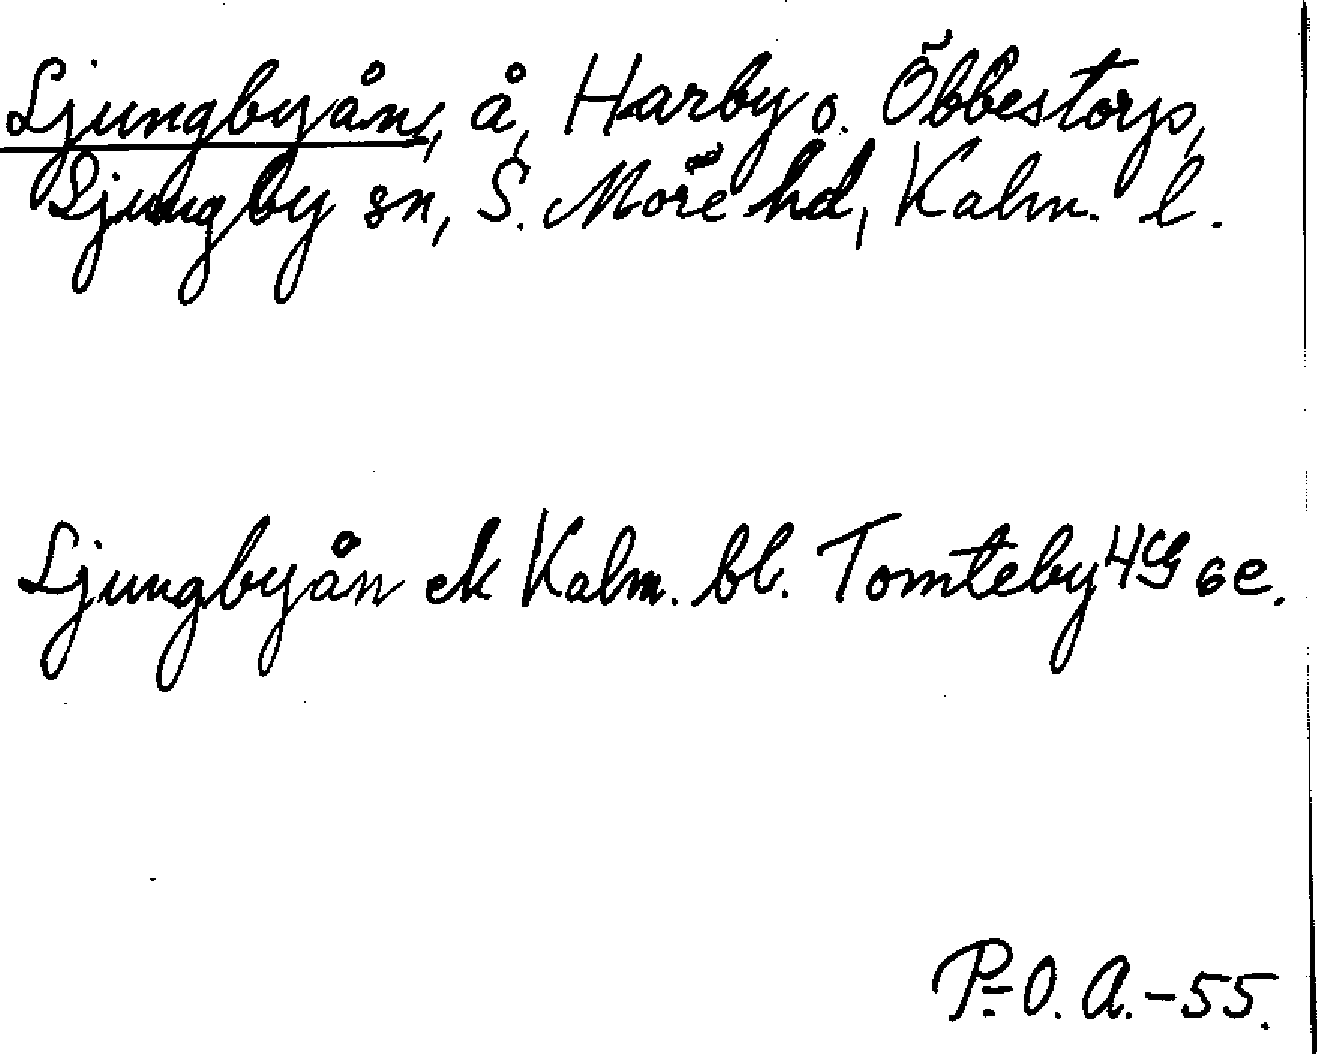 Ljungbyån, å, Harby o. Öbbestorp,
Ljungby sn, S. Möre hd, Kalm. l.
Ljungbyån ek Kalm. bl. Tomteby 4G 6e.
P.-O. A.-55.